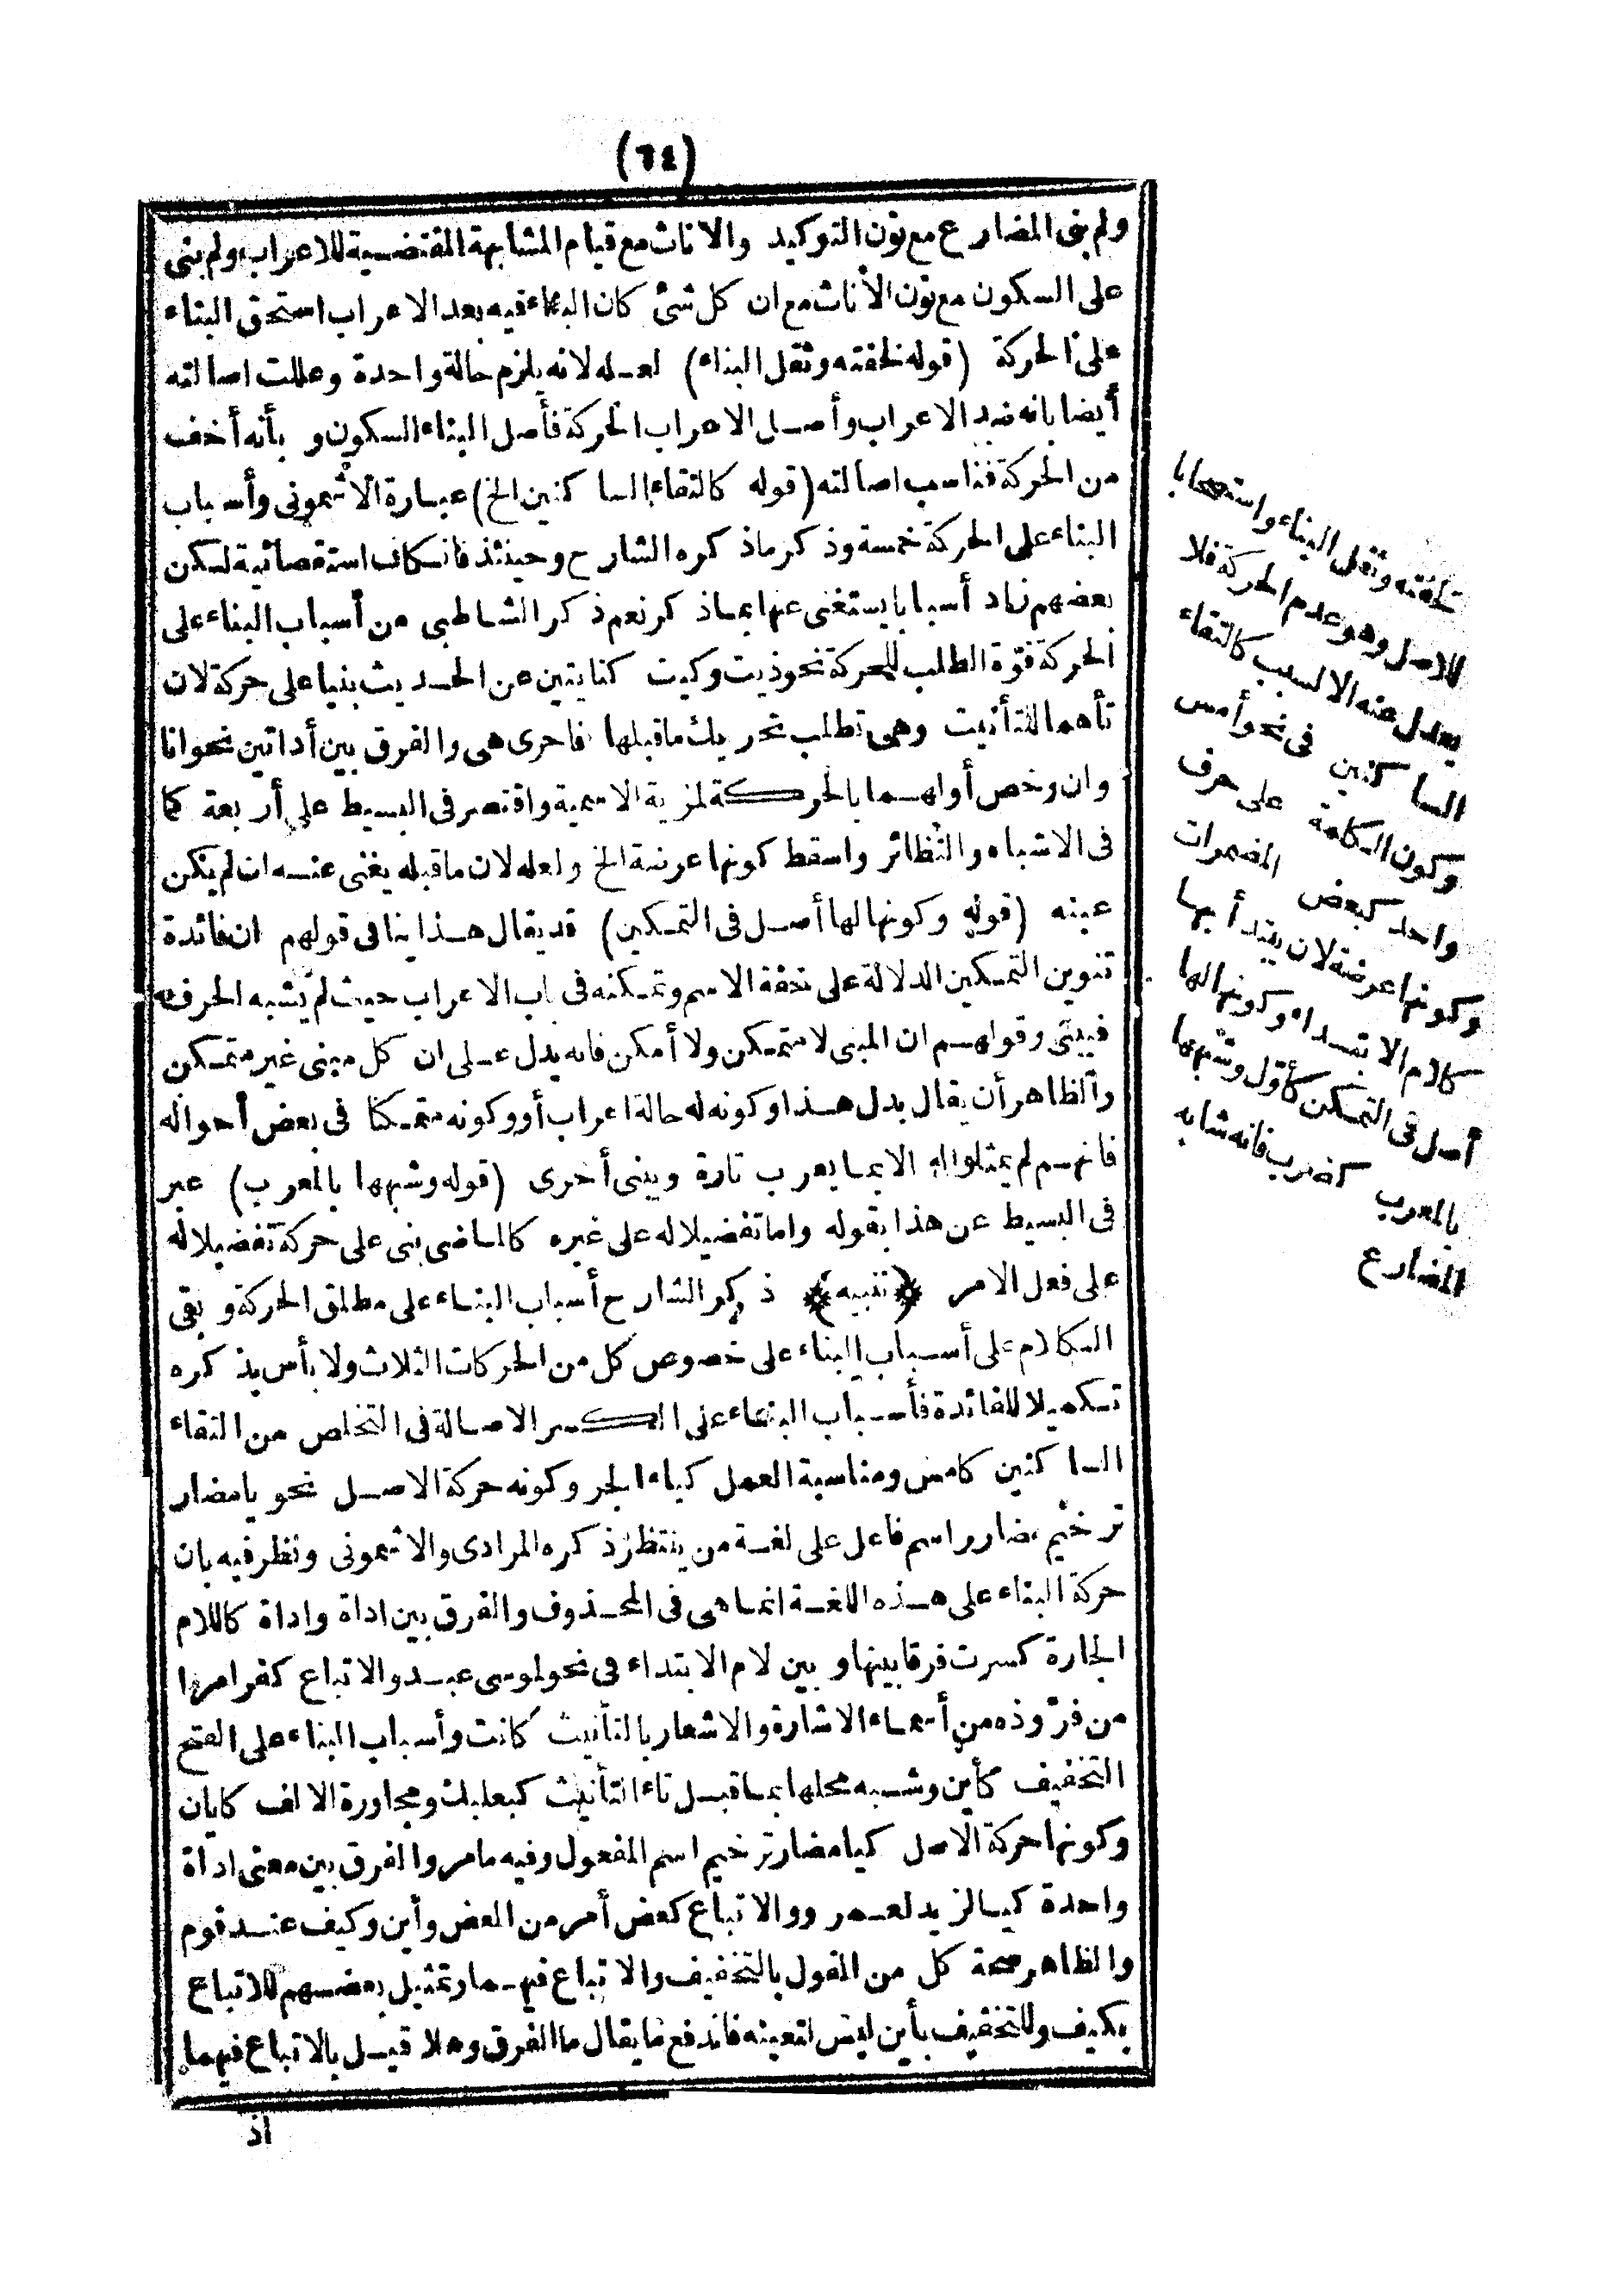 (٦٤)
ولم بنى المضارع مع نون التوكيد والاناث مع قيام المشابهة المقتضية للاعراب ولم بنى
على السكون مع نون الأناث مع ان كل شئ كان البناء فيه بعد الاعراب استحق البناء
على الحركة (قوله لخفته وثقل البناء) لعله لانه يلزم حالة واحدة وعللت اصالته
أيضا بانه ضد الاعراب وأصل الاعراب الحركة فأصل البناء السكون و بأنه أخف
من الحركة فناسب اصالته (قوله كالتقاء الساكنين الخ) عبارة الأشمونى وأسباب
البناء على الحركة خمسة وذكر ماذكره الشارح وحينئذ فالكاف استقصائية لكن
بعضهم زاد أسبابا يستغنى عنها بماذكر نعم ذكر الشاطبى من أسباب البناء على
الحركة قوة الطلب للحركة نحو ذيت وكيت كنايتين عن الحديث بنيا على حركة لان
تأهما للتأنيث وهى تطلب تحريك ماقبلها فاحرى هى والفرق بين أداتين نحو انا
وان وخص أولهما بالحركة لمزية الاسمية واقتصر فى البسيط على أربعة كما
فى الاشباه والنظائر واسقط كونها عرضة الخ ولعله لان ماقبله يغنى عنه ان لم يكن
عينه (قوله وكونها لها أصل فى التمكين) قد يقال هذا ينافى قولهم ان فائدة
تنوين التمكين الدلالة على خفة الاسم وتمكنه فى باب الاعراب حيث لم يشبه الحرف
فيبنى وقولهم ان المبنى لا متمكن ولا أمكن فانه يدل على ان كل مبنى غير متمكن
والظاهر أن يقال بدل هذا وكونه له حالة اعراب أو وكونه متمكنا فى بعض أحواله
فانهم لم يمثلوا له الا بما يعرب تارة ويبنى أخرى (قوله وشبهها بالمعرب) عبر
فى البسيط عن هذا بقوله واما تفضيلا له على غيره كالماضى بنى على حركة تفضيلا له
على فعل الامر ﴿تنبيه﴾ ذكر الشارح أسباب البناء على مطلق الحركة و بقى
الكلام على أسباب البناء على خصوص كل من الحركات الثلاث ولا بأس بذكره
تكميلا للفائدة فأسباب البناء على الكسر الاصالة فى التخلص من التقاء
الساكنين كامس ومناسبة العمل كباء الجر وكونه حركة الاصل نحو يامضار
ترخيم مضارر اسم فاعل على لغة من ينتظر ذكره المرادى والاشمونى ونظر فيه بان
حركة البناء على هذه اللغة انما هى فى المحذوف والفرق بين اداة واداة كاللام
الجارة كسرت فرقا بينها و بين لام الابتداء فى نحو لموسى عبد والاتباع كفر امرا
من فرّ وذه من أسماء الاشارة والاشعار بالتأنيث كانت وأسباب البناء على الفتح
التخفيف كأين وشبه محلها بما قبل تاء التأنيث كبعلبك ومجاورة الالف كايان
وكونها حركة الاصل كيامضار ترخيم اسم المفعول وفيه مامر والفرق بين معنى اداة
واحدة كيالزيد لعمرو والاتباع كعض أمر من العض وأين وكيف عند قوم
والظاهر صحة كل من القول بالتخفيف والاتباع فيهما وتمثيل بعضهم للاتباع
بكيف وللتخفيف بأين ليس لتعينه فاندفع ما يقال ما الفرق وهلا قيل بالاتباع فيهما
اذ
لخفته وثقل البناء واستصحابا
للاصل وهو عدم الحركة فلا
يعدل عنه الا لسبب كالتقاء
الساكنين فى نحو أمس
وكون الكلمة على حرف
واحد كبعض المضمرات
وكونها عرضة لان يبتدأ بها
كلام الابتداء وكونها لها
أصل فى التمكن كأول وشبهها
بالمعرب كضرب فانه شابه
المضارع